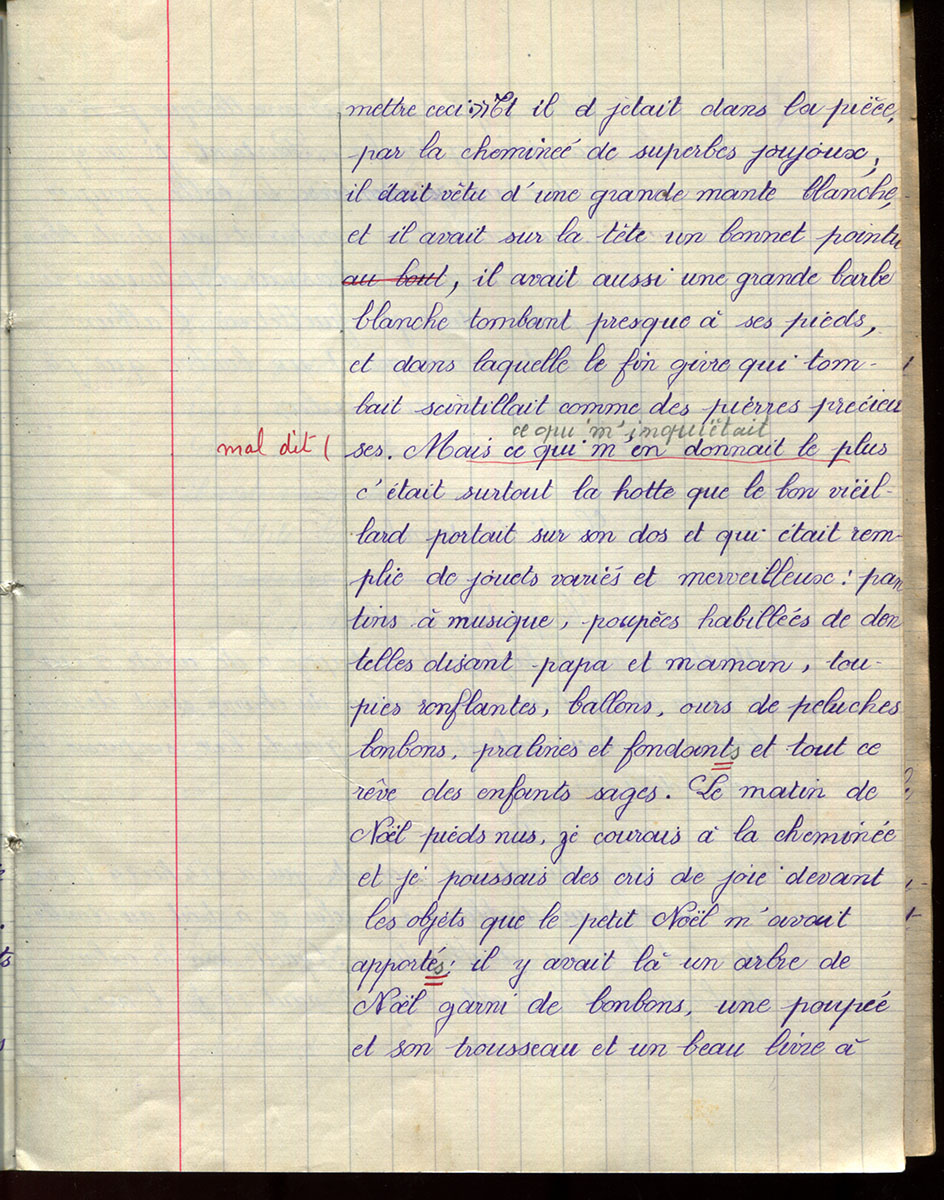 mettre ceci :» Et il d jetait dans la pièce,
par la cheminée de superbes joujoux,
il était vêtu d'une grande mante blanche,
et il avait sur la tête un bonnet pointu
au bout, il avait aussi une grande barbe
blanche tombant presque à ses pieds,
et dans laquelle le fin givre qui tom-
bait scintillait comme des pierres précieu
ce qui m'inquiétait
mal dit ( ses. Mais ce qui m'en donnait le plus
c'était surtout la hotte que le bon vieil-
lard portait sur son dos et qui était rem-
plie de jouets variés et merveilleux : pan
tins à musique, poupées habillées de den
telles disant papa et maman, tou-
pies ronflantes, ballons, ours de peluches
bonbons, pralines et fondants et tout ce
rêve des enfants sages. Le matin de
Noël pieds nus, je courais à la cheminée
et je poussais des cris de joie devant
les objets que le petit Noël m'avait
apportés; il y avait là un arbre de
Noël garni de bonbons, une poupée
et son trousseau et un beau livre à